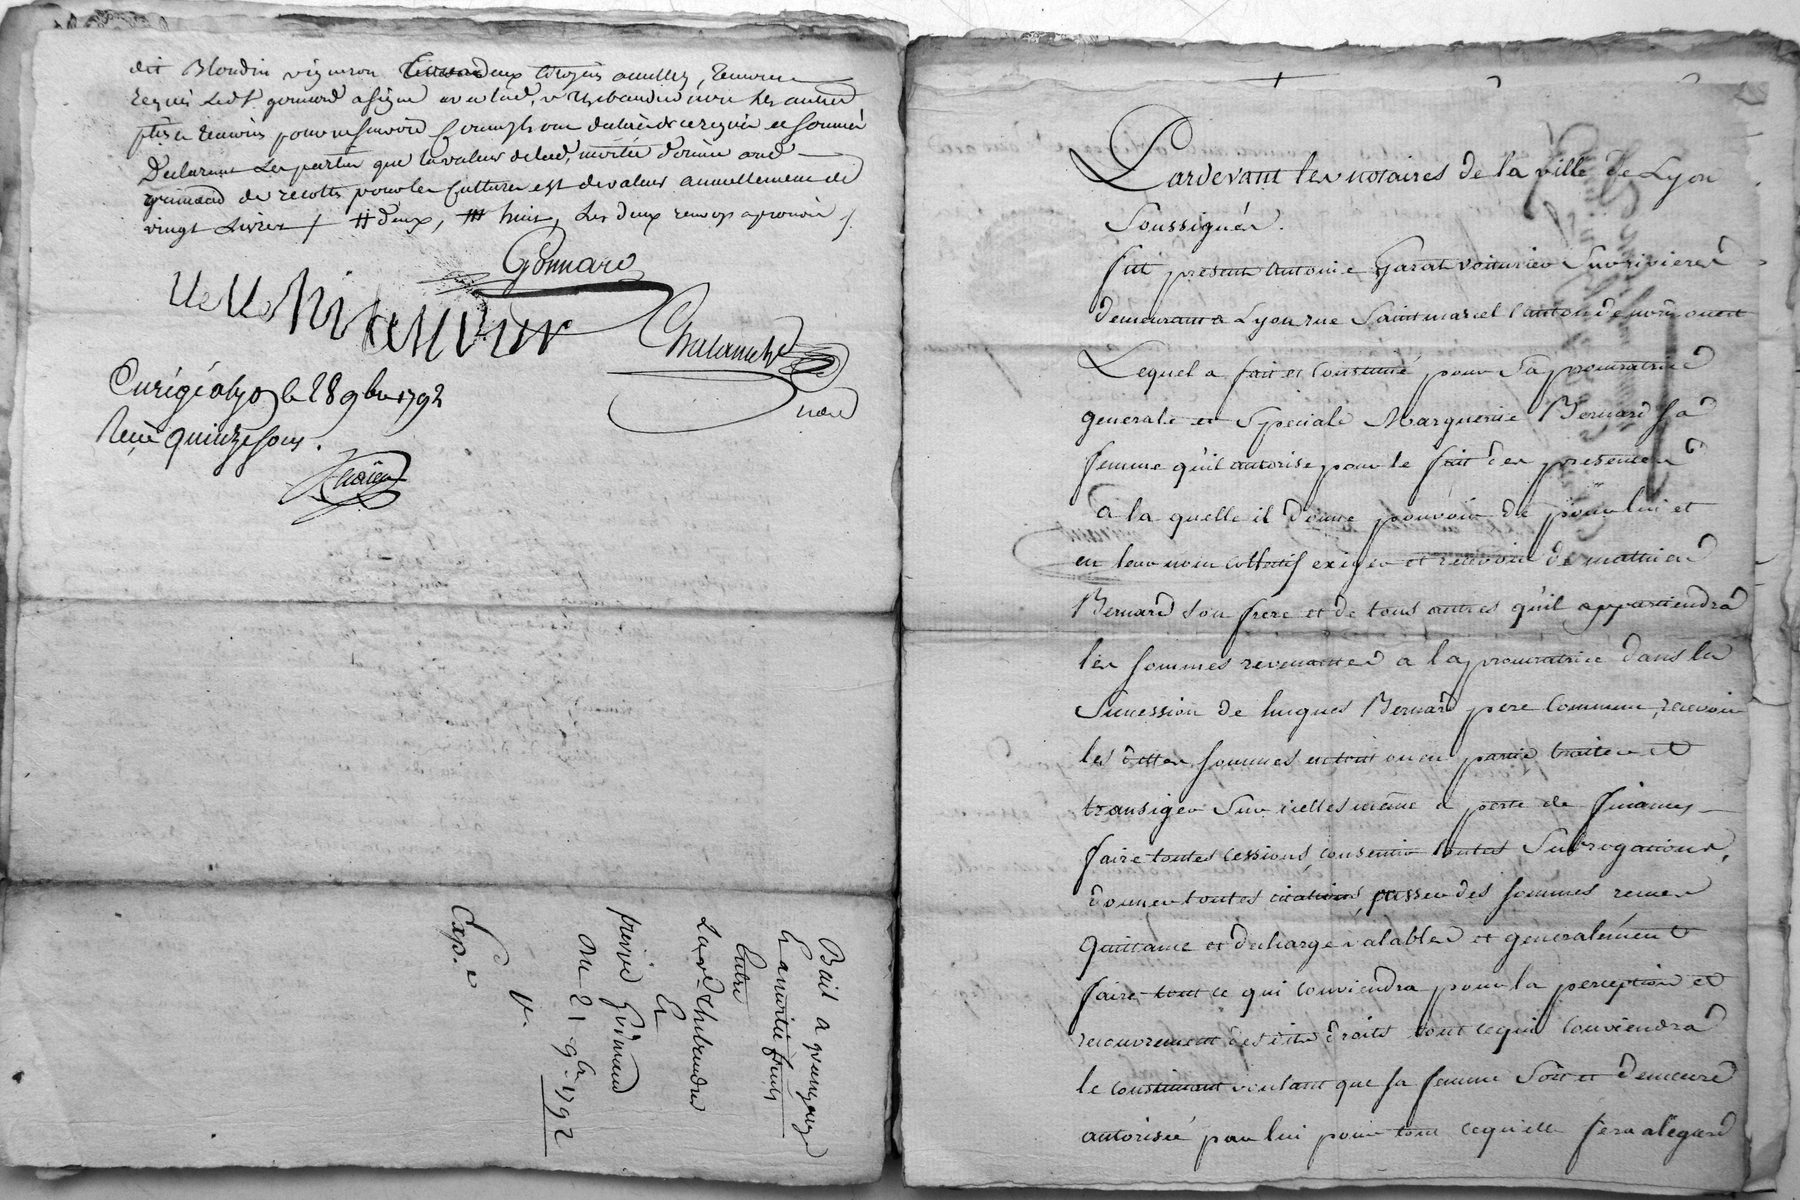 dit Blondin vigneron deux citoyens
requis led. S. gonnard a signé avec lad. v. thibaudier non les autres
Declarent les parties que la valeur de lad. moitié d'orière
de recolte pour les cultures est de valeur annuellement de
vingt livres / # deux, # huit, les deux renvoys aprouvés /.
Gonnard
Chalanche
nore
le 28 9bre 1792
Reçu quinze sous.
Bail a
La moitié fruits
Entre
La ve. thibaudier
Et
pierre Grimaud
Du 21 9bre 1792
V.
Exp.e
Pardevant les notaires de la ville de Lyon
Soussignés.
fut present Antoine Garat voiturier sur rivieres
demeurant a Lyon rue Saint marcel Canton de nord ouest
Lequel a fait et constitué pour sa procuratrice
generale et Speciale Marguerite Bernard sa
femme qu'il autorise pour le fait des presentes
a la quelle il donne pouvoir de pour lui et
en leur nom collectif exiger et recevoir de mathieu
Bernard son frere et de tous autres qu'il appartiendra
les sommes revenantes a la procuratrice dans la
Succession de hugues Bernard pere commun, recevoir
les dittes sommes en tout ou en partie traiter et
transiger sur icelles même a perte de finances
faire toutes cessions, consentir toutes Subrogations,
donner toutes citations, passer des sommes recues
Quittance et decharge valables et generalement
faire tout ce qui conviendra pour la perception et
recouvrement des dits droits tout ce qui conviendra
le constituant voulant que sa femme soit et demeure
autorisée par lui pour tout ce qu'elle fera a l'egard